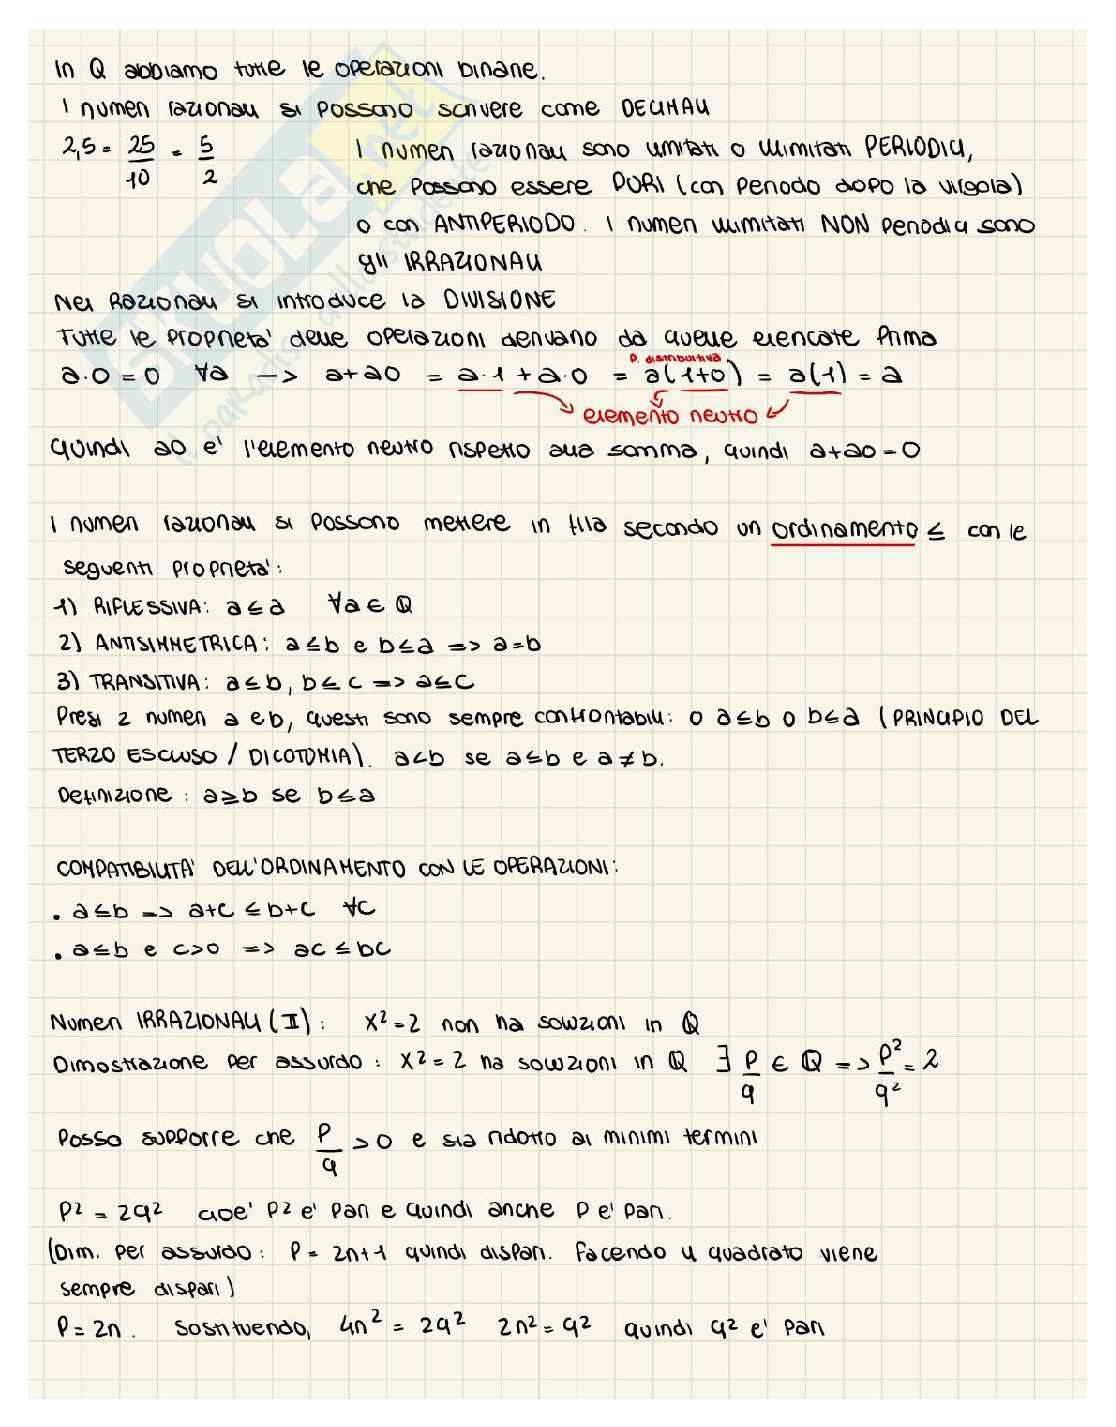 In Q abbiamo tutte le operazioni binarie.
I numeri razionali si possono scrivere come DECIMALI
2,5 = 25/10 = 5/2
I numeri razionali sono limitati o illimitati PERIODICI,
che possono essere PURI (con periodo dopo la virgola)
o con ANTIPERIODO. I numeri illimitati NON periodici sono
gli IRRAZIONALI
Nei Razionali si introduce la DIVISIONE
Tutte le proprietà delle operazioni derivano da quelle elencate prima
p. distributiva
a·0 = 0 ∀a -> a+a0 = a·1 + a·0 = a(1+0) = a(1) = a
elemento neutro
quindi a0 e' l'elemento neutro rispetto alla somma, quindi a+a0=0
I numeri razionali si possono mettere in fila secondo un ordinamento ≤ con le
seguenti proprietà:
1) RIFLESSIVA: a≤a ∀a∈ℚ
2) ANTISIMMETRICA: a≤b e b≤a => a=b
3) TRANSITIVA: a≤b, b≤c => a≤c
Presi 2 numeri a e b, questi sono sempre confrontabili: o a≤b o b≤a (PRINCIPIO DEL
TERZO ESCLUSO / DICOTOMIA). a<b se a≤b e a≠b.
Definizione: a≥b se b≤a
COMPATIBILITA' DELL'ORDINAMENTO CON LE OPERAZIONI:
. a≤b => a+c ≤ b+c ∀c
. a≤b e c>0 => ac ≤ bc
Numeri IRRAZIONALI (II): x²=2 non ha soluzioni in ℚ
Dimostrazione per assurdo: x²=2 ha soluzioni in ℚ ∃ p/q ∈ ℚ => p²/q² = 2
Posso supporre che p/q > 0 e sia ridotto ai minimi termini
p² = 2q² cioe' p² e' pari e quindi anche p e' pari.
(Dim. per assurdo: p = 2n+1 quindi dispari. Facendo il quadrato viene
sempre dispari)
p = 2n. Sostituendo, 4n² = 2q² 2n² = q² quindi q² e' pari
SKUOLA.net
il paradiso dello studente